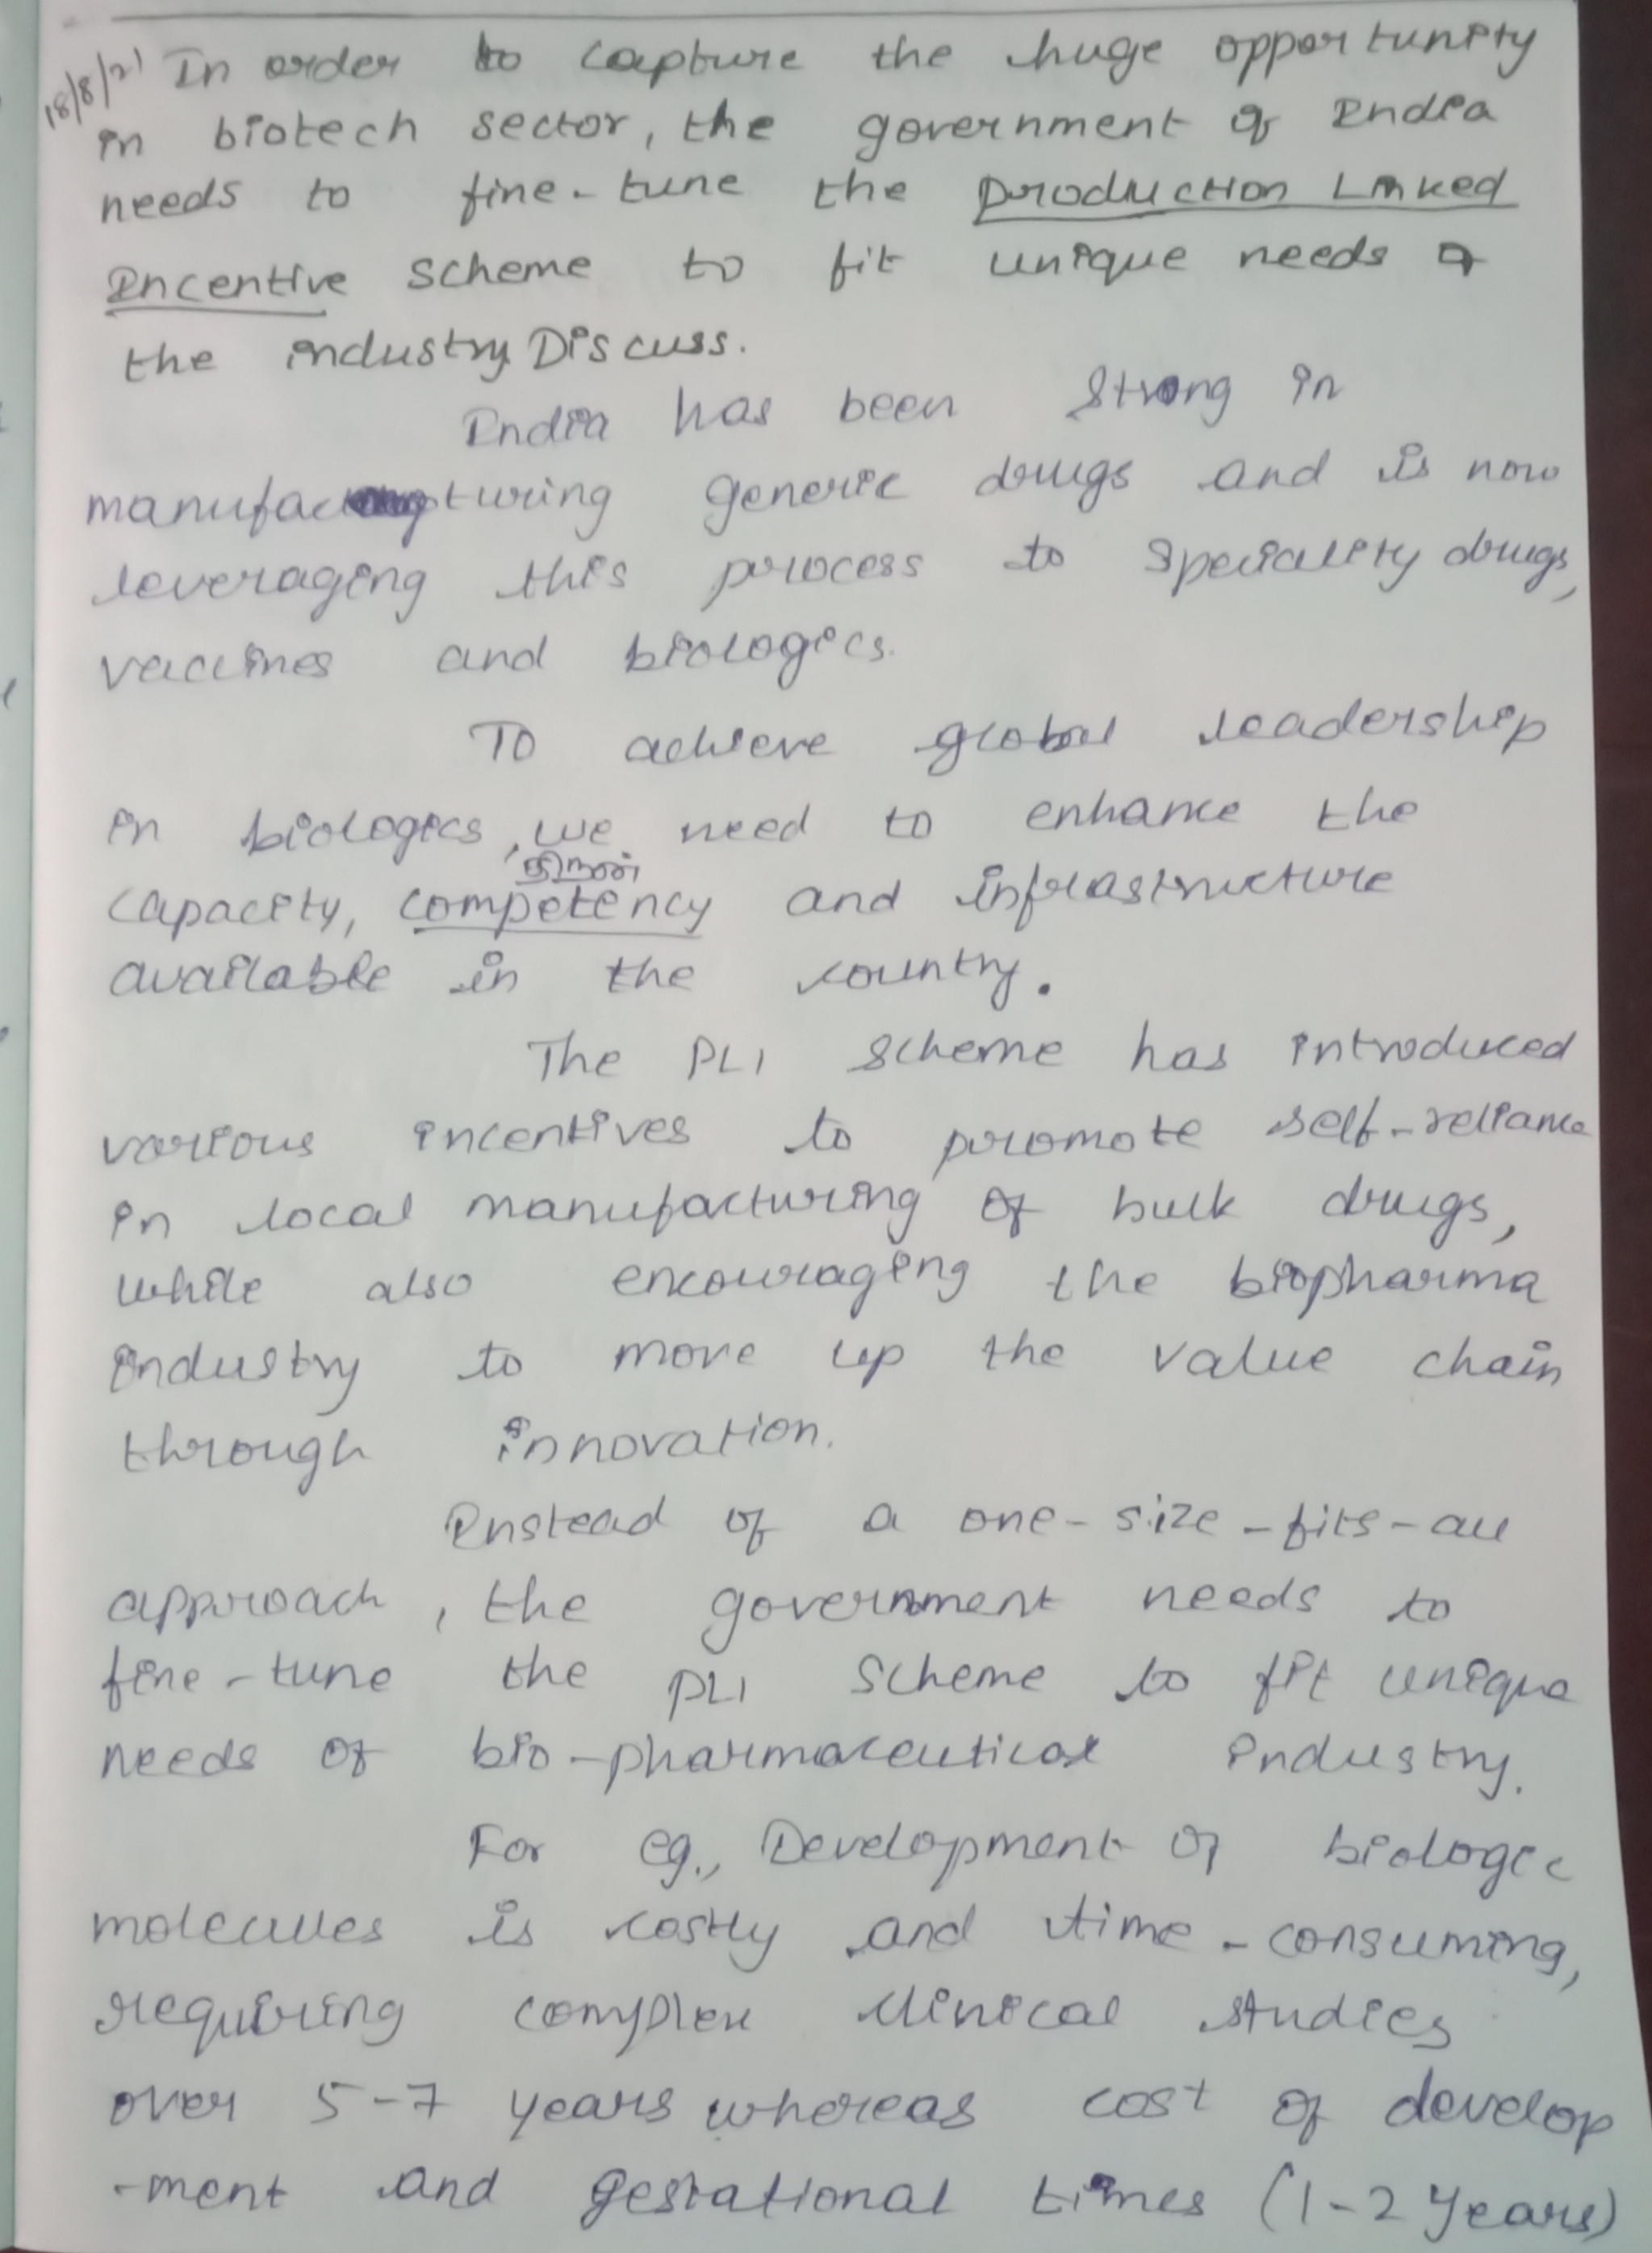 18/8/21 In order to capture the huge opportunity
in biotech sector, the government of India
needs to fine-tune the production Linked
Incentive scheme to fit unique needs of
the industry. Discuss.
India has been strong in
manufacturing generic drugs and is now
leveraging this process to speciality drugs,
vaccines and biologics.
To achieve global leadership
in biologics, we need to enhance the
திறன்
capacity, competency and infrastructure
available in the country.
The PLI scheme has introduced
various incentives to promote self-reliance
in local manufacturing of bulk drugs,
while also encouraging the biopharma
industry to move up the value chain
through innovation.
Instead of a one-size-fits-all
approach, the government needs to
fine-tune the PLI scheme to fit unique
needs of bio-pharmaceutical industry.
For eg., Development of biologic
molecules is costly and time-consuming,
requiring complex clinical studies
over 5-7 years whereas cost of develop
-ment and gestational times (1-2 years)